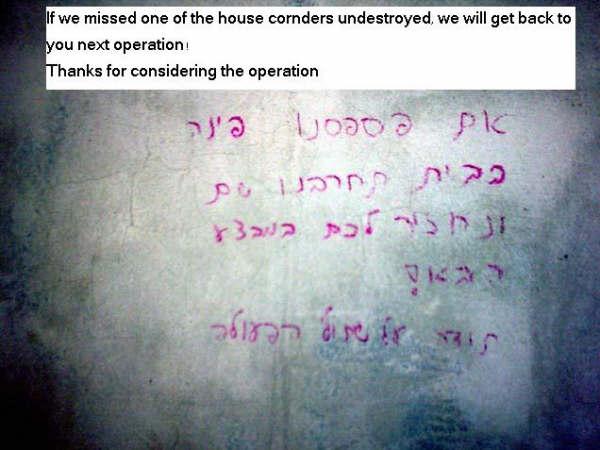 If we missed one of the house cornders undestroyed, we will get back to
you next operation!
Thanks for considering the operation
אם פספסנו פינה
בבית תחרבנו שם
ונחזיר לכם במבצע
הבא
תודה על שתוף הפעולה